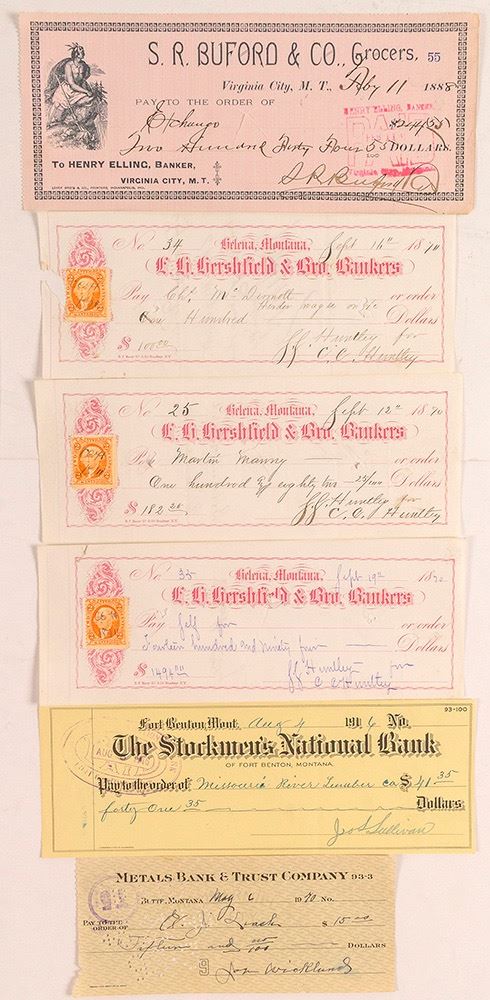 S. R. BUFORD & CO., Grocers, 55
Virginia City, M. T., Feby 11 1888
PAY TO THE ORDER OF
Exchange $244 55
Two Hundred Forty Four 55 DOLLARS.
100
TO HENRY ELLING, BANKER,
VIRGINIA CITY, M. T.
S R Buford & Co
HENRY ELLING, BANKER,
PAID
Virginia City
No 34 Helena, Montana, Sept 16th 1870
E. H. Hershfield & Bro. Bankers
Pay Chs. McDermott or order
One Hundred Dollars
$100.00 J. J. Huntley for
C. C. Huntley
No 25 Helena, Montana, Sept 12th 1870
E. H. Hershfield & Bro. Bankers
Pay Martin Manny or order
One hundred & eighty two 25/100 Dollars
$182 25 J. J. Huntley for
C. C. Huntley
No 35 Helena, Montana, Sept 19th 1870
E. H. Hershfield & Bro. Bankers
Pay Self for or order
Fourteen hundred and ninety four Dollars
$1494 00 J J Huntley for
C C Huntley
93-100
Fort Benton, Mont. Aug 4 1916 No.
The Stockmen's National Bank
OF FORT BENTON, MONTANA.
Pay to the order of Missouri River Lumber Co $41 35
forty One 35 Dollars
Jos Sullivan
METALS BANK & TRUST COMPANY 93-3
BUTTE, MONTANA May 6 1920 No.
PAY TO THE
ORDER OF Cash $15 00
Fifteen and 00/100 DOLLARS
Jon Wicklund